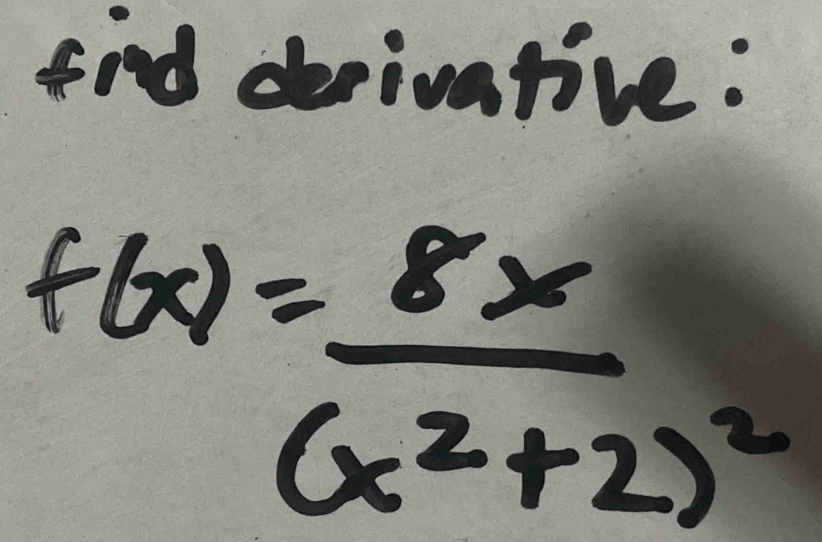 find derivative:
f(x) = 8x
(x²+2)²